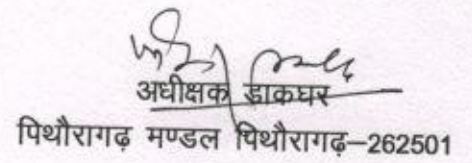 अधीक्षक डाकघर
पिथौरागढ़ मण्डल पिथौरागढ़–262501